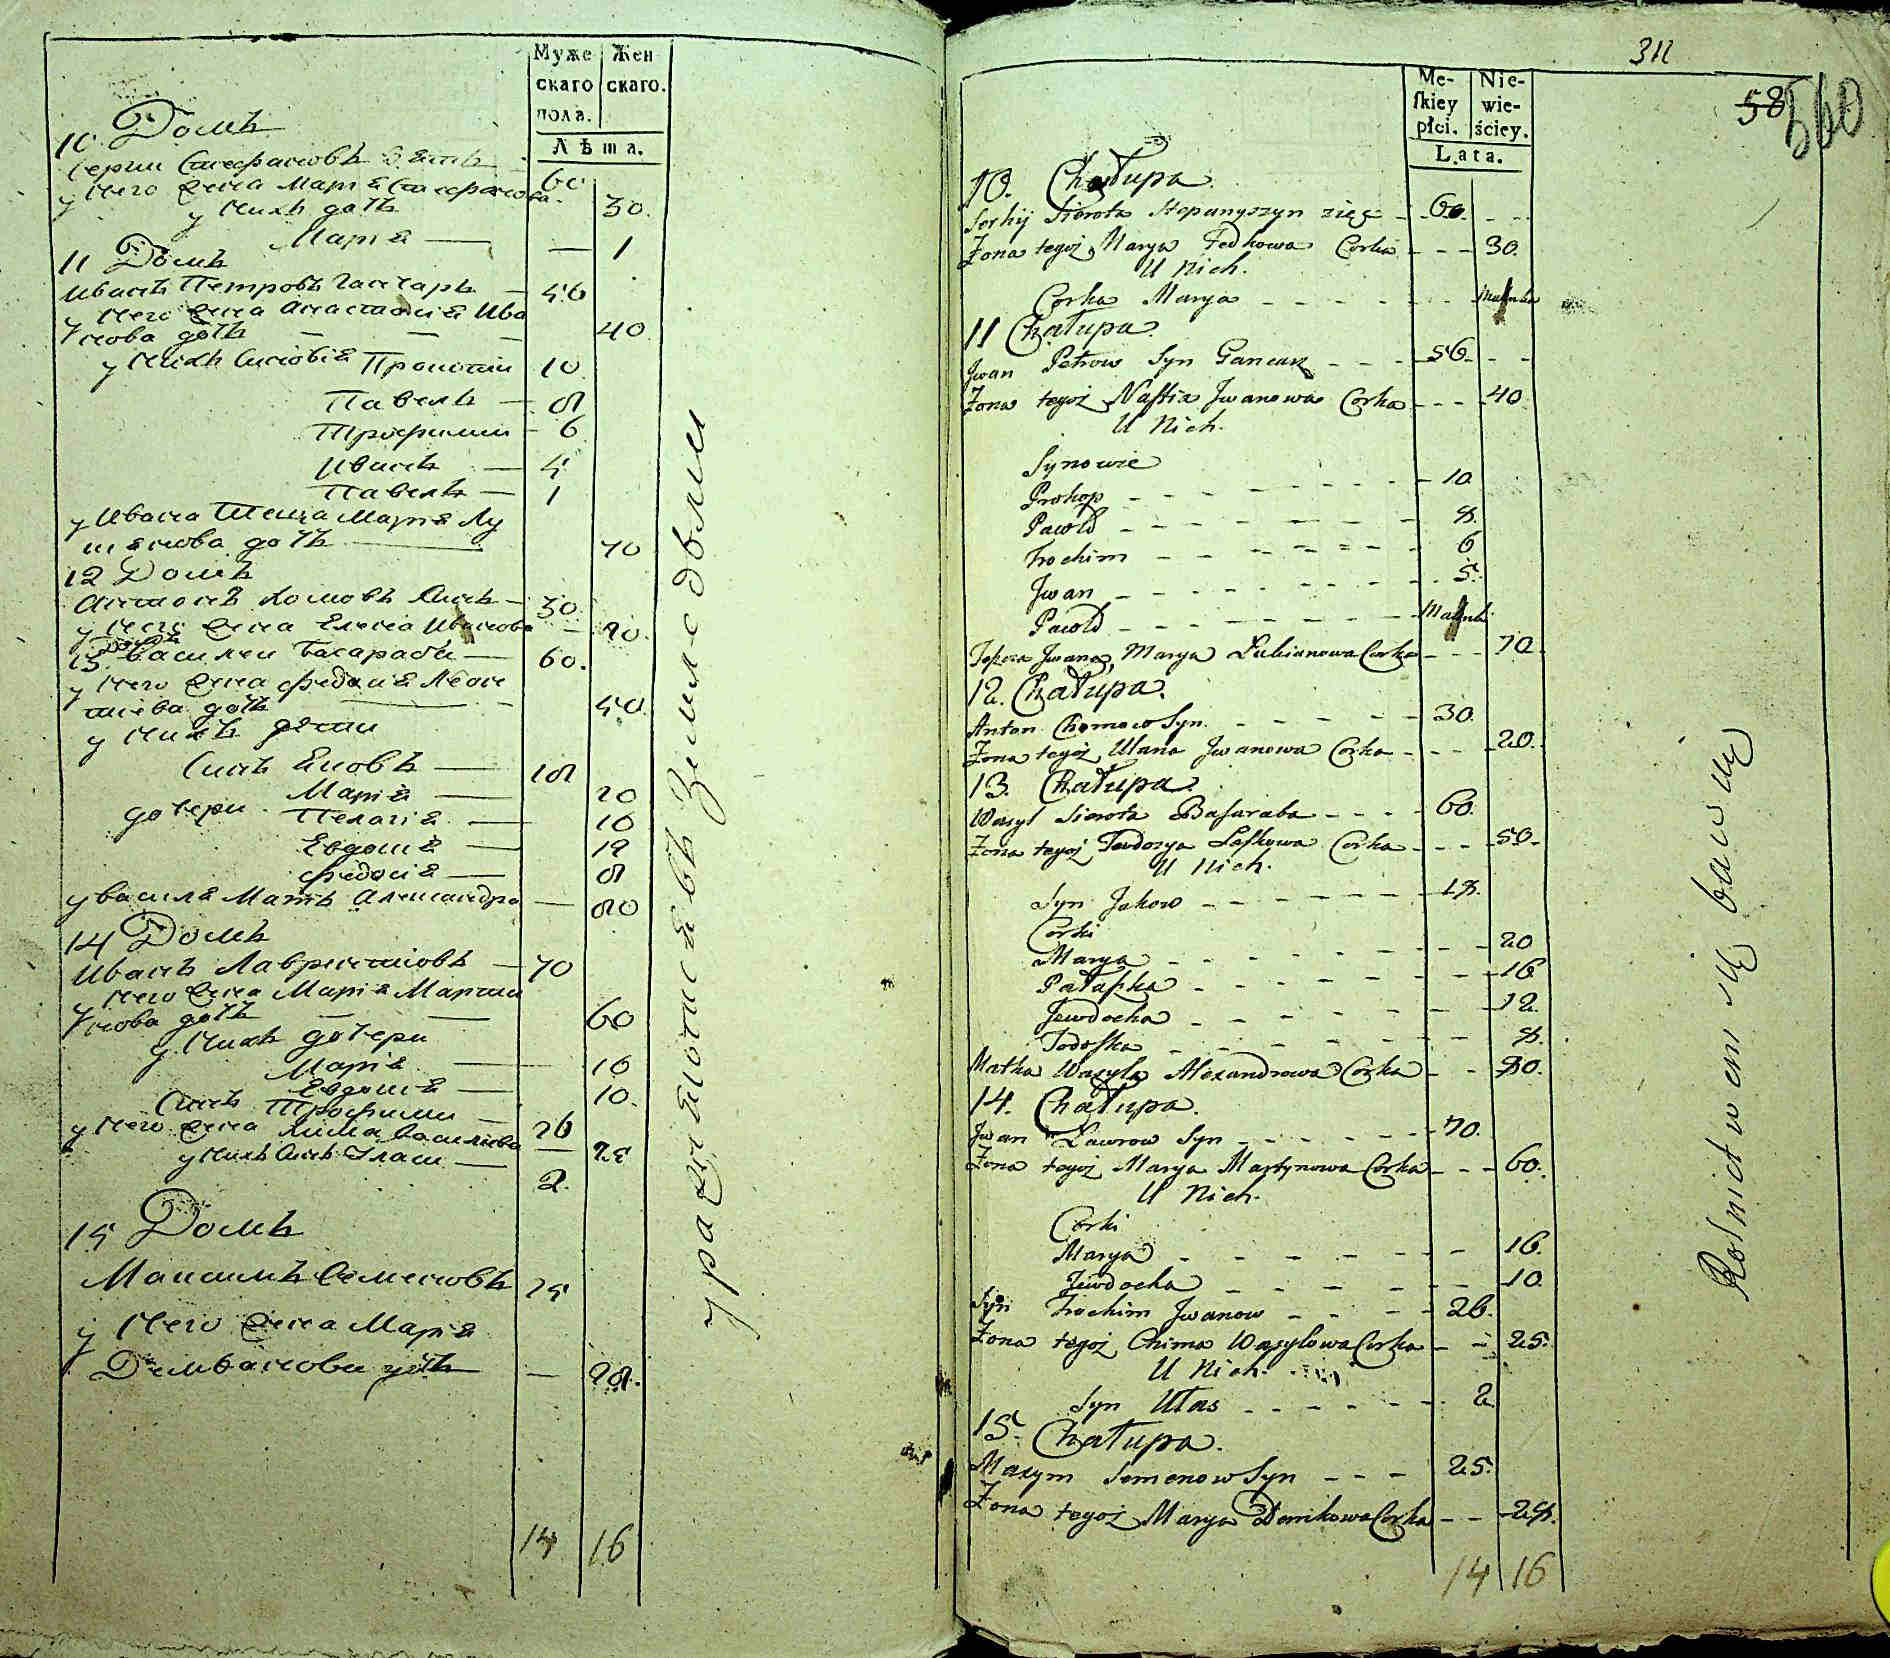 Муже Жен
скаго скаго.
пола.
Лѣта.
10 Домъ
Сергии Стефановъ Зять 60
у него жена Мария Стефанова 30.
у нихъ дочь
Мария — — 1
11 Домъ
Иванъ Петровъ Ганчаръ — 56
у него жена Анастасия Ива
нова дочь — — — 40
у нихъ сыновія Прокопии 10
Павелъ — 8
Трофимъ — 6
Иванъ — 5
Павелъ — 1
у Ивана Теща Мария Лу
кянова дочь — 70
12 Домъ
Антонъ Хомовъ сынъ — 30
у него жена Елена Иванова — 20.
13 Домъ
Василеи Басараба — 60.
у него жена Федосия Леон
тиева дочь — 50.
у нихъ дети
Сынъ Яковъ — 18
Мария — 20
дочери Пелагия — 16
Евдокия — 12
Федосия — 8
у Василя Мать Александра — 80
14 Домъ
Иванъ Лаврентиовъ — 70
у него жена Мария Марти
нова дочь — — 60
у нихъ дочери
Мария — 16
Евдокия — 10.
Сынъ Трофимъ — 26
у него жена Хима Василиева — 25
у нихъ Сынъ Уласъ — 2.
15 Домъ
Максимъ Семеновъ 25
у него жена Мария
дочь — 28.
14 16
упражняются въ Земледелии
311
58 560
Mę- Nie-
skiey wie-
płci. ściey.
Lata.
10. Chałupa.
Serhij Sierota Stepanyszyn zięć - - 60. - -
Zona tegoż, Marya Fedkowa Corka - - - 30.
U Nich.
Corka Marya - - - - - - - - Malinka
11 Chałupa.
Jwan Petrow Syn Gancarz - - - 56. - -
Zona tegoż Nastia Jwanowa Corka - - - 40.
U Nich.
Synowie
Prokop - - - - - - - 10
Pawło - - - - - - 8.
Trochim - - - - - - - 6
Jwan - - - - - - - - 5.
Pawło - - - - - - - Malinki
Teścza Jwana, Marya Lukianowa Corka - - - 70.
12. Chałupa.
Anton Chomow Syn. - - - - - 30.
Zona tegoż, Ulana Jwanowa Corka - - - - 20.
13. Chałupa.
Wasyl Sierota Basaraba - - - - 60.
Zona tegoż Teodozya Leskowa Corka - - - - 50.
U Nich.
Syn Jakow - - - - - - - 18.
Corki
Marya - - - - - - - - 20
Pałaszka - - - - - - - - 16
Jewdocha - - - - - - - - 12.
Todoska - - - - - - - 8.
Matka Wasyla Alexandrowa Corka - - 80.
14. Chałupa.
Jwan Lawrow Syn - - - - - - 70.
Zona tegoż Marya Martynowa Corka - - - 60.
U Nich.
Corki
Marya - - - - - - - 16.
Jewdocha - - - - - - 10
Syn Trochim Jwanow - - - - 26.
Zona tegoż, Chima Wasylowa Corka - - 25.
U Nich.
Syn Ułas - - - - - - - 2
15. Chałupa.
Maxym Semenow Syn - - - 25.
Zona tegoż Marya Demkowa Corka - - - 28.
14 16
Rolnictwem się bawię